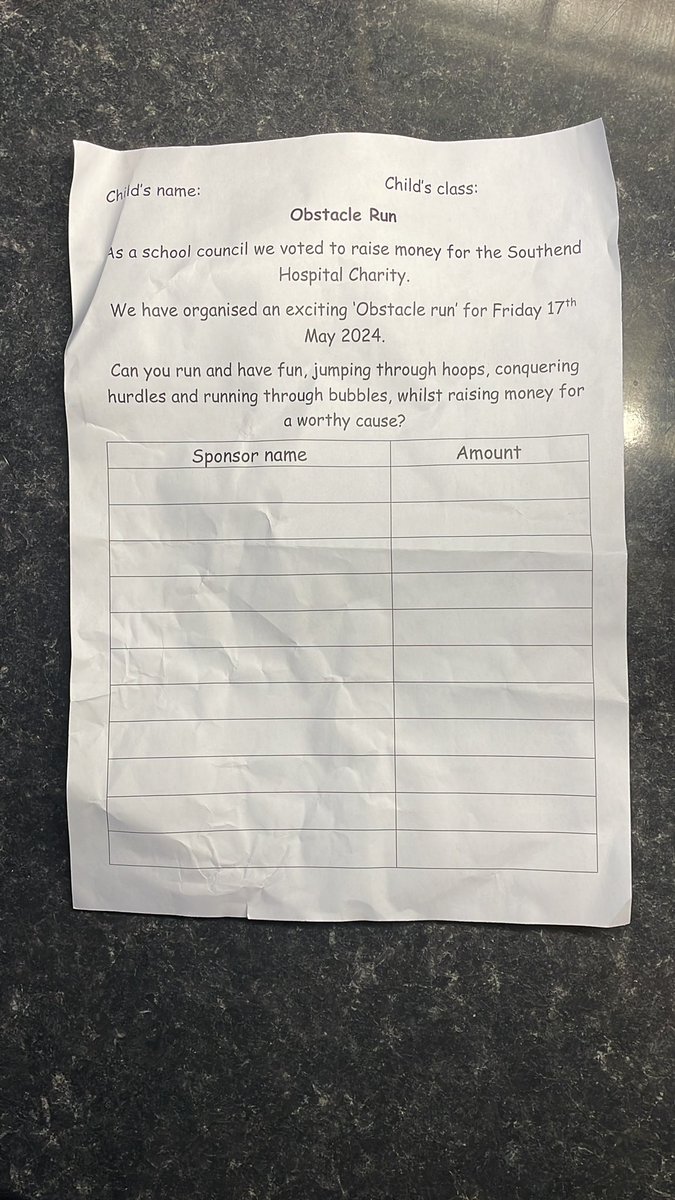 Child's name: Child's class:
Obstacle Run
As a school council we voted to raise money for the Southend
Hospital Charity.
We have organised an exciting 'Obstacle run' for Friday 17th
May 2024.
Can you run and have fun, jumping through hoops, conquering
hurdles and running through bubbles, whilst raising money for
a worthy cause?
Sponsor name Amount